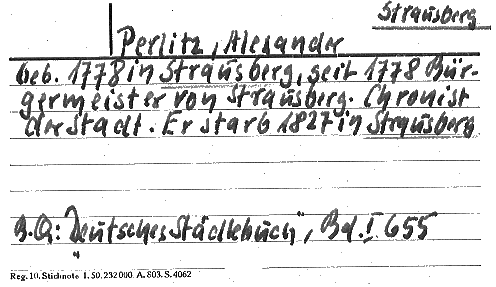 Strausberg
Perlitz, Alexander
Geb. 1778 in Strausberg, seit 1778 Bür-
germeister von Strausberg. Chronist
der Stadt. Er starb 1827 in Strausberg
B.Q.: „Deutsches Städtebuch", Bd. I 655
Reg. 10. Stichnote 1. 50. 232000. A. 803. S. 4062